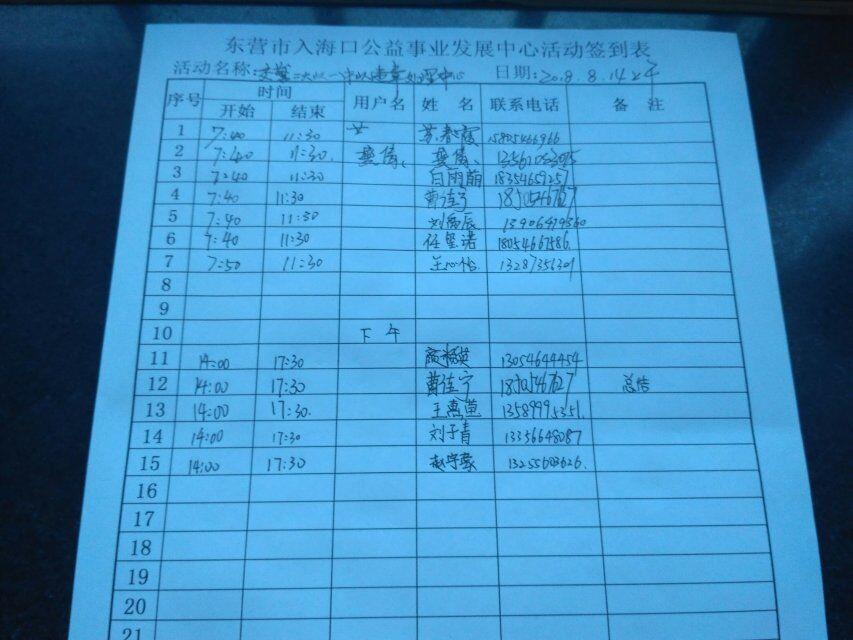 东营市入海口公益事业发展中心活动签到表
活动名称: 大队一中队违章处理中心 日期: 2018.8.14
序号 时间 用户名 姓名 联系电话 备注
开始 结束
1 7:40 11:30 苏春霞 15805466966
2 7:40 11:30.
3 7:40 11:30 白雨萌 18354659257
4 7:40 11:30 曹佳宁
5 7:40 11:30
6 7:40 11:30 任玺诺 18054667586.
7 7:50 11:30 王心怡 13287351301
8
9
10 下午
11 14:00 17:30 13054644454
12 14:00 17:30 曹佳宁 总结
13 14:00 17:30. 13589995351.
14 14:00 17:30 刘子青 13356648087
15 14:00 17:30 13255603626.
16
17
18
19
20
21